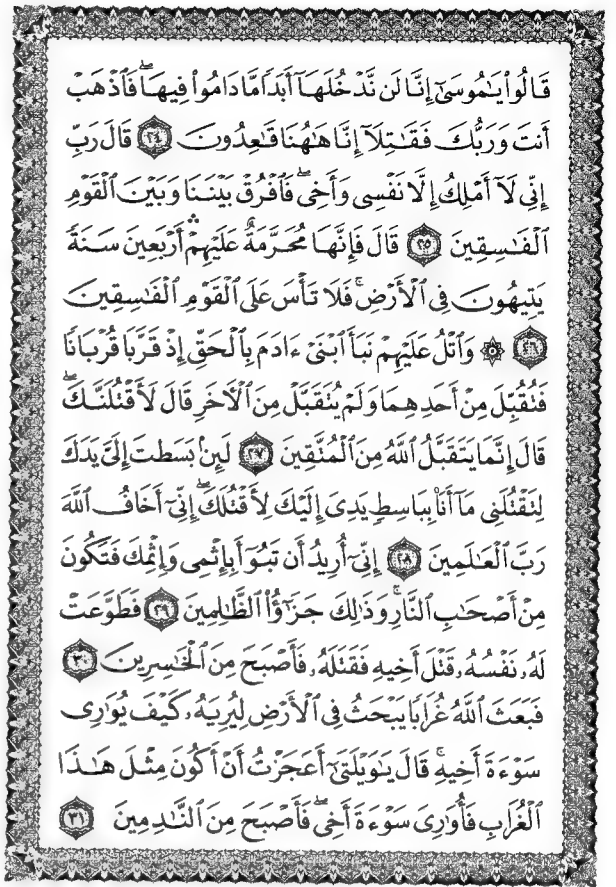 قَالُوا۟ يَـٰمُوسَىٰٓ إِنَّا لَن نَّدْخُلَهَآ أَبَدًا مَّا دَامُوا۟ فِيهَا ۖ فَٱذْهَبْ
أَنتَ وَرَبُّكَ فَقَـٰتِلَآ إِنَّا هَـٰهُنَا قَـٰعِدُونَ ٢٤ قَالَ رَبِّ
إِنِّى لَآ أَمْلِكُ إِلَّا نَفْسِى وَأَخِى ۖ فَٱفْرُقْ بَيْنَنَا وَبَيْنَ ٱلْقَوْمِ
ٱلْفَـٰسِقِينَ ٢٥ قَالَ فَإِنَّهَا مُحَرَّمَةٌ ۛ عَلَيْهِمْ ۛ أَرْبَعِينَ سَنَةً
يَتِيهُونَ فِى ٱلْأَرْضِ ۚ فَلَا تَأْسَ عَلَى ٱلْقَوْمِ ٱلْفَـٰسِقِينَ
٢٦ ۞ وَٱتْلُ عَلَيْهِمْ نَبَأَ ٱبْنَىْ ءَادَمَ بِٱلْحَقِّ إِذْ قَرَّبَا قُرْبَانًا
فَتُقُبِّلَ مِنْ أَحَدِهِمَا وَلَمْ يُتَقَبَّلْ مِنَ ٱلْـَٔاخَرِ قَالَ لَأَقْتُلَنَّكَ ۖ
قَالَ إِنَّمَا يَتَقَبَّلُ ٱللَّهُ مِنَ ٱلْمُتَّقِينَ ٢٧ لَئِنۢ بَسَطتَ إِلَىَّ يَدَكَ
لِتَقْتُلَنِى مَآ أَنَا۠ بِبَاسِطٍ يَدِىَ إِلَيْكَ لِأَقْتُلَكَ ۖ إِنِّىٓ أَخَافُ ٱللَّهَ
رَبَّ ٱلْعَـٰلَمِينَ ٢٨ إِنِّىٓ أُرِيدُ أَن تَبُوٓأَ بِإِثْمِى وَإِثْمِكَ فَتَكُونَ
مِنْ أَصْحَـٰبِ ٱلنَّارِ ۚ وَذَٰلِكَ جَزَٰٓؤُا۟ ٱلظَّـٰلِمِينَ ٢٩ فَطَوَّعَتْ
لَهُۥ نَفْسُهُۥ قَتْلَ أَخِيهِ فَقَتَلَهُۥ فَأَصْبَحَ مِنَ ٱلْخَـٰسِرِينَ ٣٠
فَبَعَثَ ٱللَّهُ غُرَابًا يَبْحَثُ فِى ٱلْأَرْضِ لِيُرِيَهُۥ كَيْفَ يُوَٰرِى
سَوْءَةَ أَخِيهِ ۚ قَالَ يَـٰوَيْلَتَىٰٓ أَعَجَزْتُ أَنْ أَكُونَ مِثْلَ هَـٰذَا
ٱلْغُرَابِ فَأُوَٰرِىَ سَوْءَةَ أَخِى ۖ فَأَصْبَحَ مِنَ ٱلنَّـٰدِمِينَ ٣١